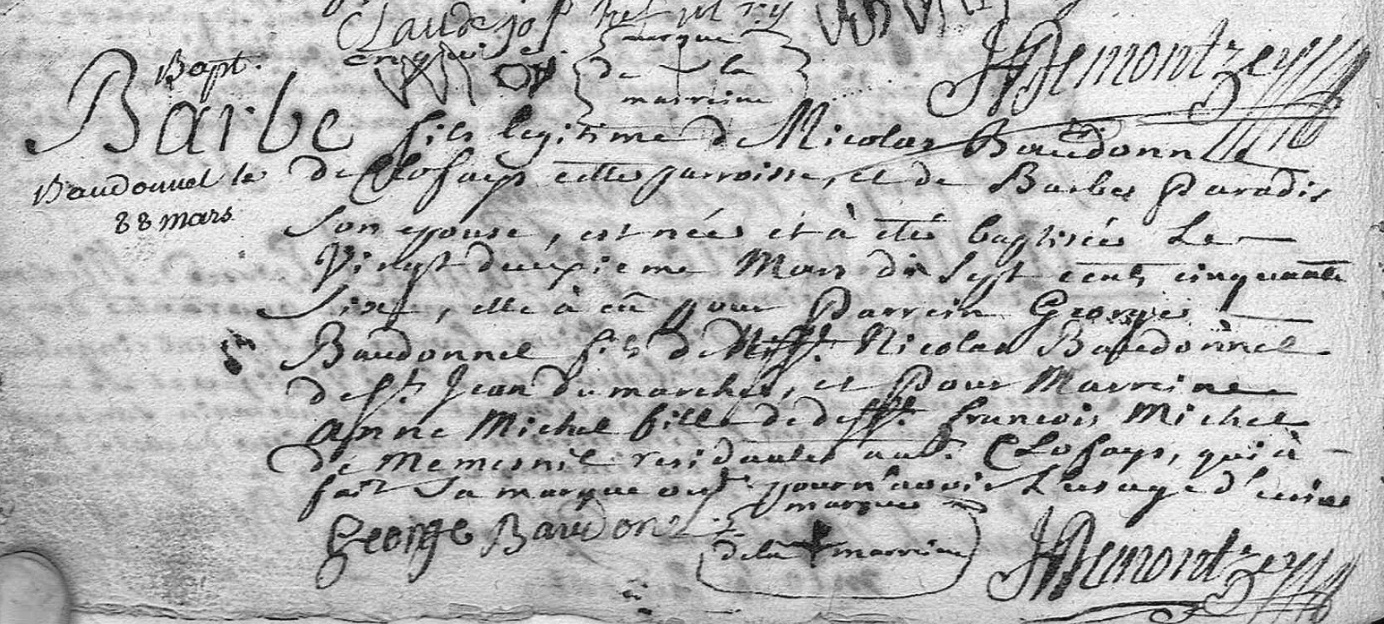 Claude Jos
marque
de la
marreine
JH Demontzey
Bapt.
Barbe fils legitime de Nicolas Baudonnel
Baudonnel le
22 mars
de Clofays cette parroisse, et de Barbe Paradis
son epouse, est née et à eté baptisée Le
Vingt deuxieme Mars dix sept cent cinquante
Six, elle à eu pour Parrein George
Baudonnel fils de Nicolas Baudonnel
de St. Jean du marchez, et pour Marreine
Anne Michel fille de defft. francois Michel
de Memesnil residante aud. Clofays, qui à
fait sa marque pour n'avoir L'usage d'écrire
George Baudonel
marque
de la marreine
JH Demontzey